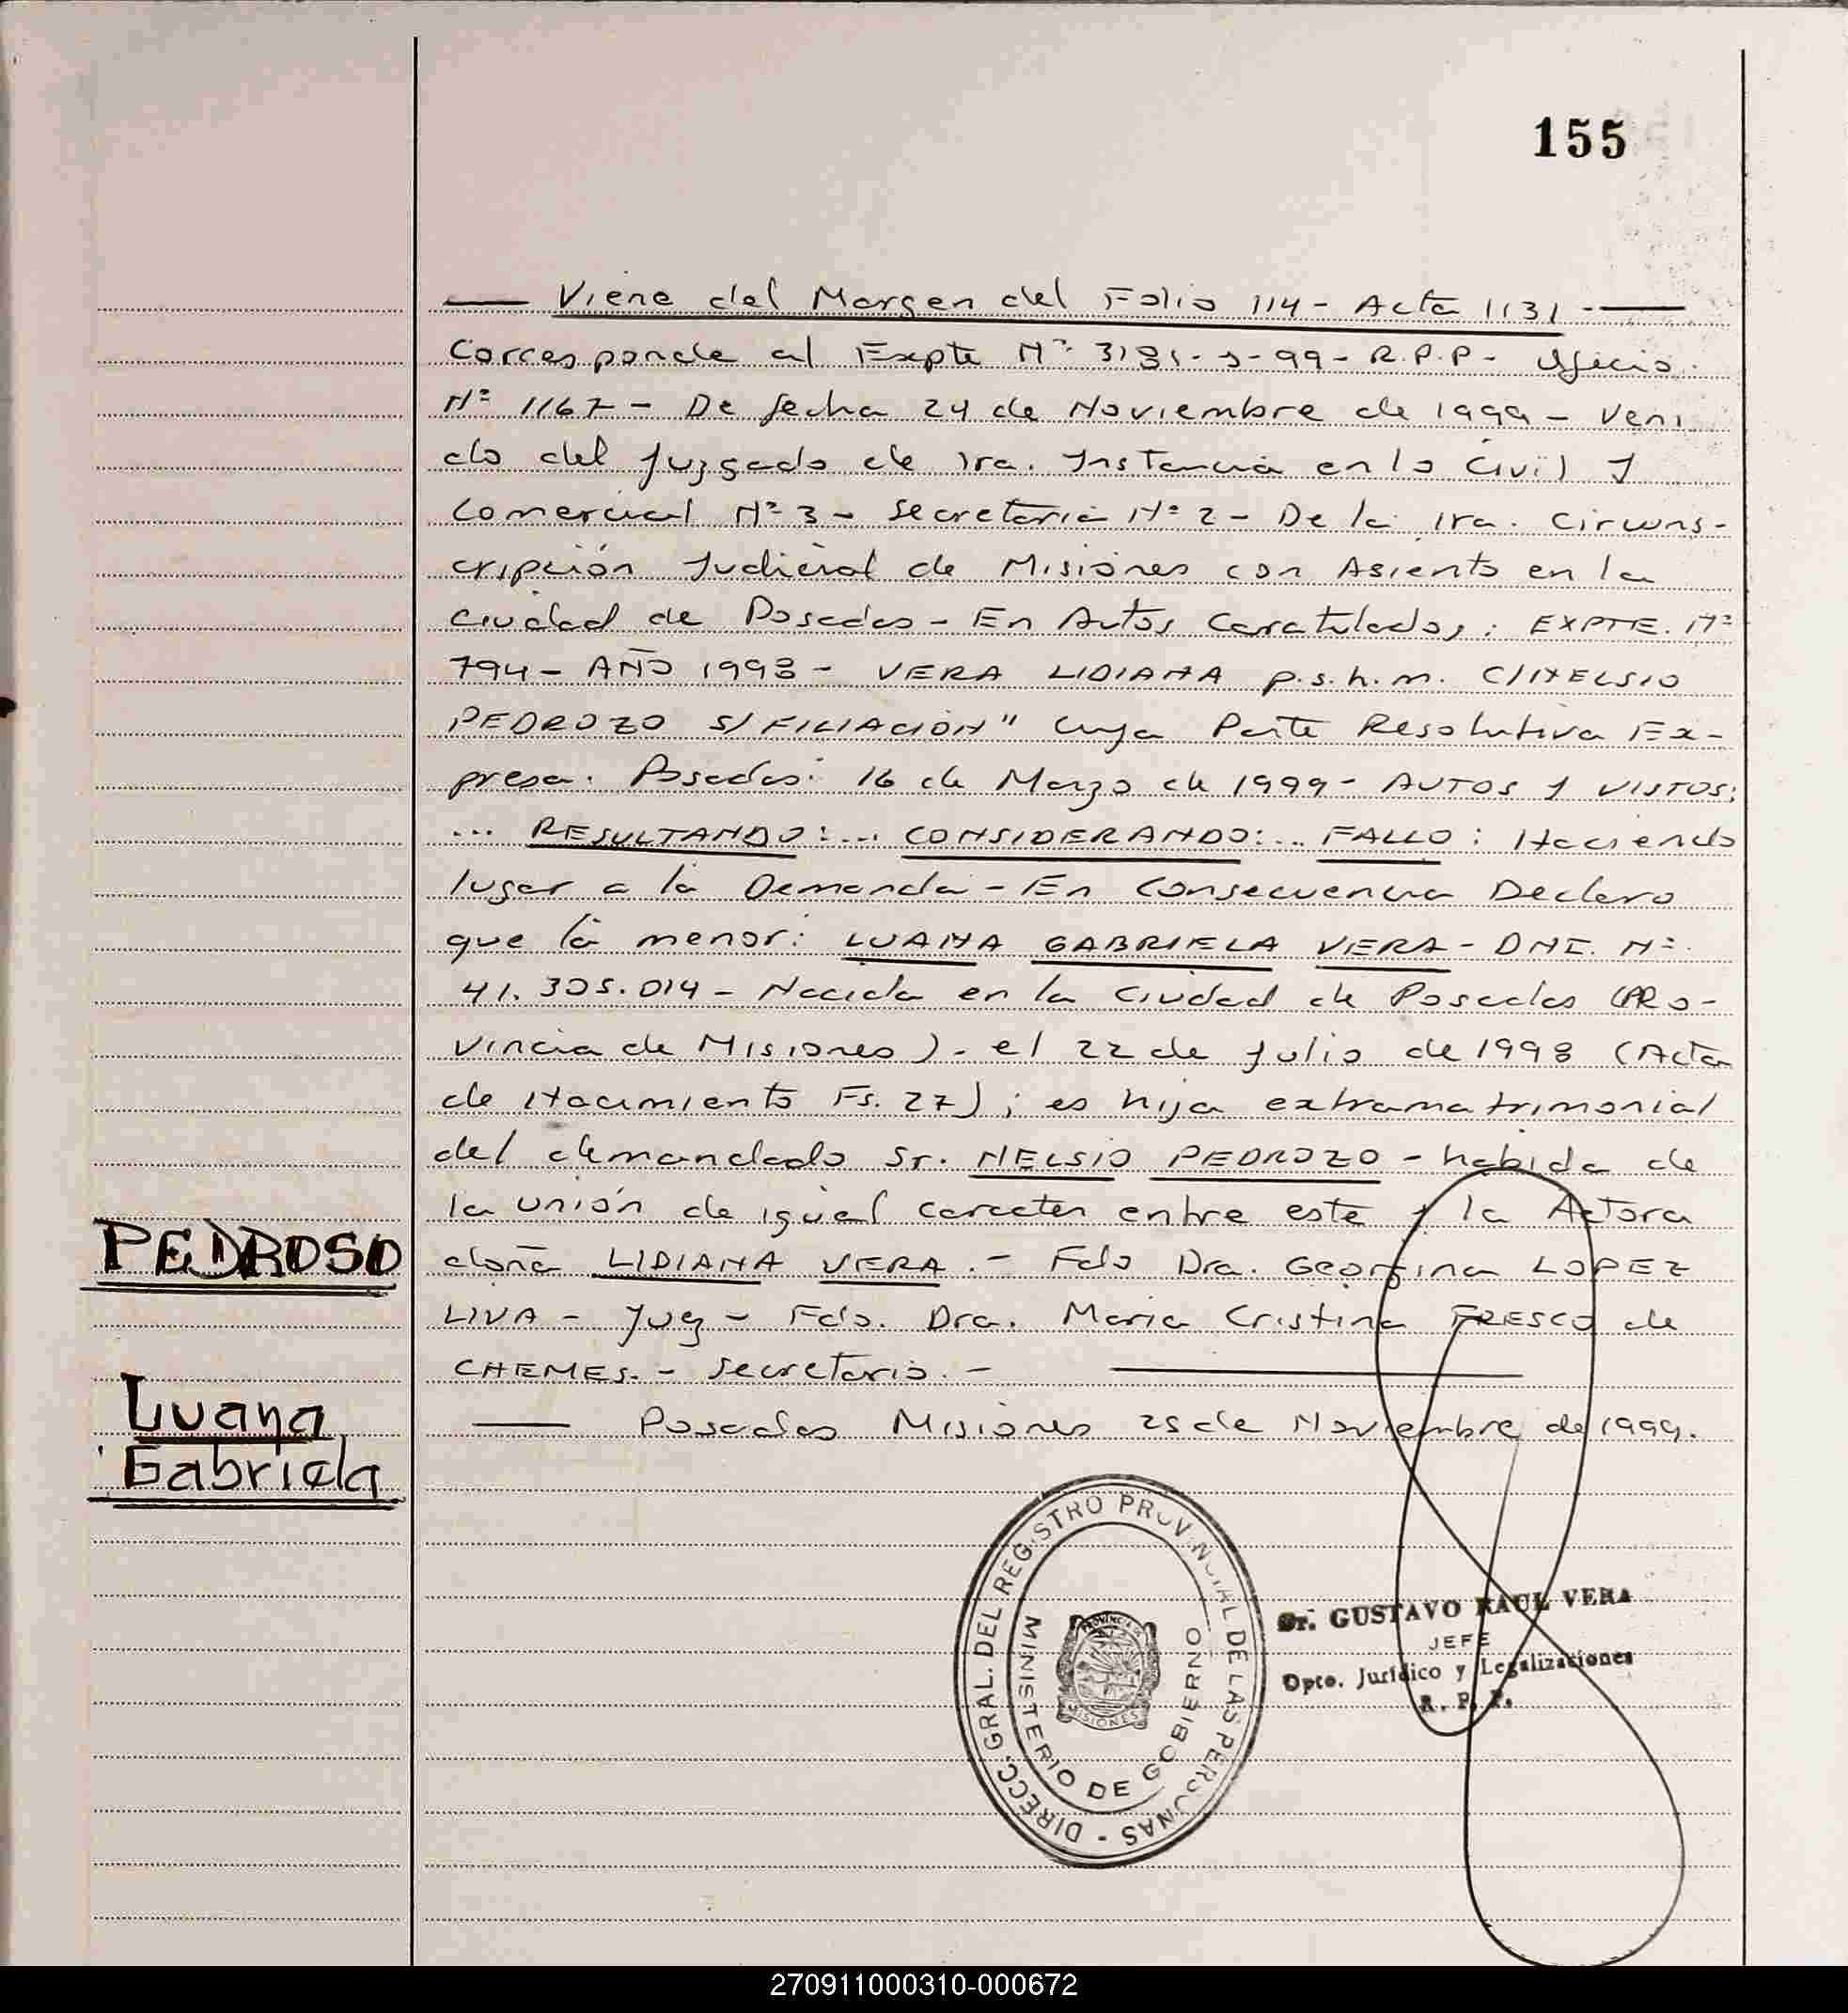 155
Viene del Margen del Folio 114 - Acta 1131 -
Corresponde al Expte Nº 3181-J-99 - R.P.P - Oficio
Nº 1167 - De fecha 24 de Noviembre de 1999 - Veni
do del Juzgado de 1ra. Instancia en lo Civil y
Comercial Nº 3 - Secretaria Nº 2 - De la 1ra. Circuns-
cripción Judicial de Misiones con Asiento en la
Ciudad de Posadas - En Autos Caratulados: EXPTE. Nº
794 - AÑO 1998 - VERA LIDIANA p.s.h.m. C/NELSIO
PEDROZO S/FILIACIÓN" Cuya Parte Resolutiva Ex-
presa. Posadas: 16 de Marzo de 1999 - AUTOS Y VISTOS:
... RESULTANDO:... CONSIDERANDO:... FALLO: Haciendo
lugar a la Demanda - En Consecuencia Declaro
que la menor: LUANA GABRIELA VERA - DNI. Nº
41.305.014 - Nacida en la Ciudad de Posadas (PRo-
vincia de Misiones) - el 22 de Julio de 1998 (Acta
de Nacimiento Fs. 27); es hija extramatrimonial
del demandado Sr. NELSIO PEDROZO - habida de
la unión de igual caracter entre este y la Actora
PEDROSO
doña LIDIANA VERA. - Fdo Dra. Georgina LOPEZ
LIVA - Juez - Fdo. Dra. Maria Cristina FRESCO de
CHEMES. - Secretario. -
Luana
Posadas Misiones 25 de Noviembre de 1999.
Gabriela
DIRECC. GRAL. DEL REGISTRO PROVINCIAL DE LAS PERSONAS -
MINISTERIO DE GOBIERNO
PROVINCIA
MISIONES
Sr. GUSTAVO RAUL VERA
JEFE
Dpto. Jurídico y Legalizaciones
R. P. P.
270911000310-000672